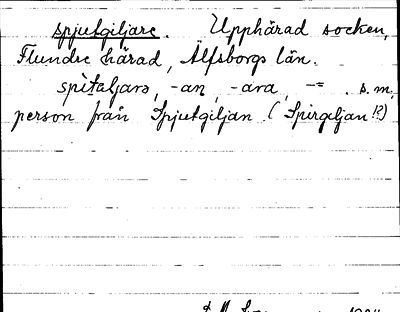 spjutgiljare. Upphärad socken,
Flundre härad, Älfsborgs län.
spìtaljara, -an, -ara, -= . s.m.
person från Spjutgiljan. (Spirgiljan!?)